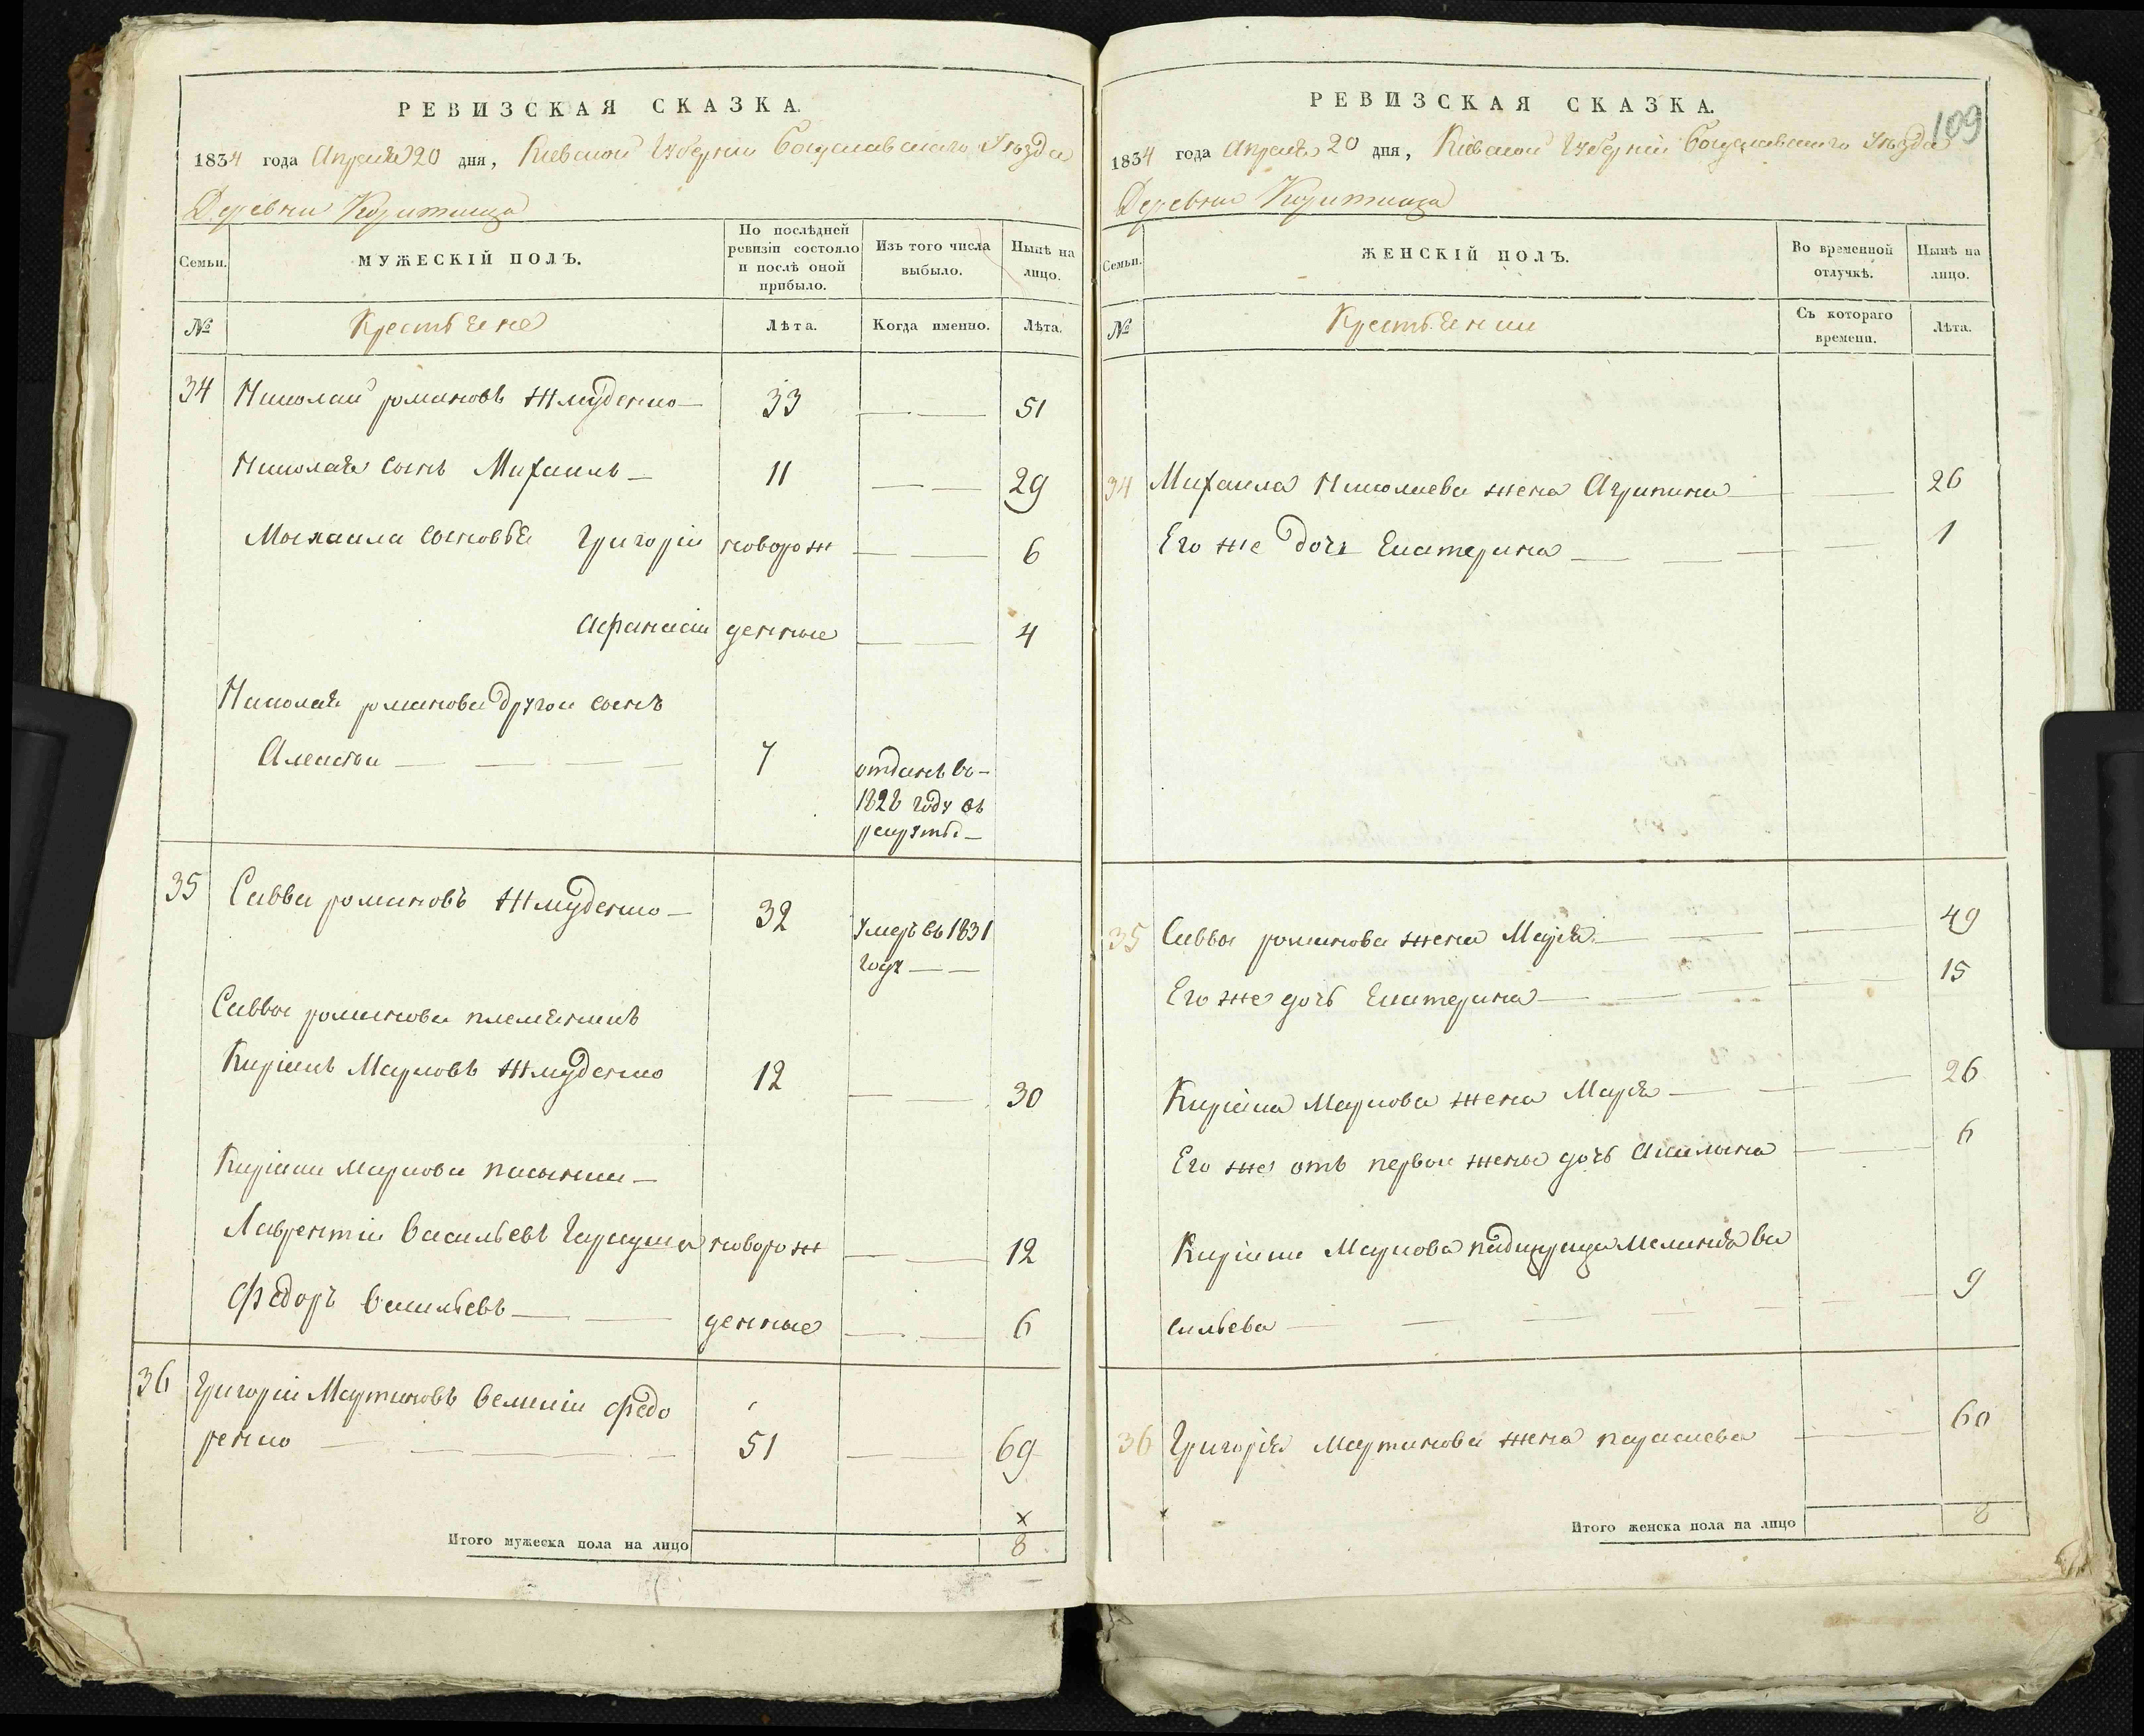 РЕВИЗСКАЯ СКАЗКА.
1834 года Апреля 20 дня, Киевской Губернии Богуславского Уѣзда
Деревни
Семьи.
МУЖЕСКІЙ ПОЛЪ.
По послѣдней ревизіи состояло и послѣ оной прибыло.
Изъ того числа выбыло.
Нынѣ на лицо.
№
Крестьяне
Лѣта.
Когда именно.
Лѣта.
34 Николай романовъ Жмуденко 33 51
Николая сынъ Михаилъ 11 29
Михаила сыновья Григорій новорож 6
Афанасій денные 4
Николая романова другой сынъ
Алексѣй 7 отданъ въ
1828 году въ
рекруты
35 Савва романовъ Жмуденко 32 умеръ въ 1831
году
Саввы романова племянникъ
Киріякъ Марковъ Жмуденко 12 30
Киріяка Маркова пасынки
Лаврентій Васильевъ новорож 12
Федоръ Васильевъ денные 6
36 Григорій Мартиновъ Великій Федо
ренко 51 69
х
Итого мужеска пола на лицо 8
РЕВИЗСКАЯ СКАЗКА.
109
1834 года Апреля 20 дня, Кіевской Губерніи Богуславскаго Уѣзда
Деревни
Семьи.
ЖЕНСКІЙ ПОЛЪ.
Во временной отлучкѣ.
Нынѣ на лицо.
№
Крестьянки
Съ котораго времени.
Лѣта.
34 Михаила Николаева жена Агрипина 26
Его же дочь Екатерина 1
35 Саввы романова жена Марія 49
Его же дочь Екатерина 15
Киріяка Маркова жена Марія 26
Его же отъ первой жены дочь Акилина 6
Киріяка Маркова падчерица Меланія Ва
сильева 9
36 Григорія Мартинова жена параскева 60
х
Итого женска пола на лицо 8